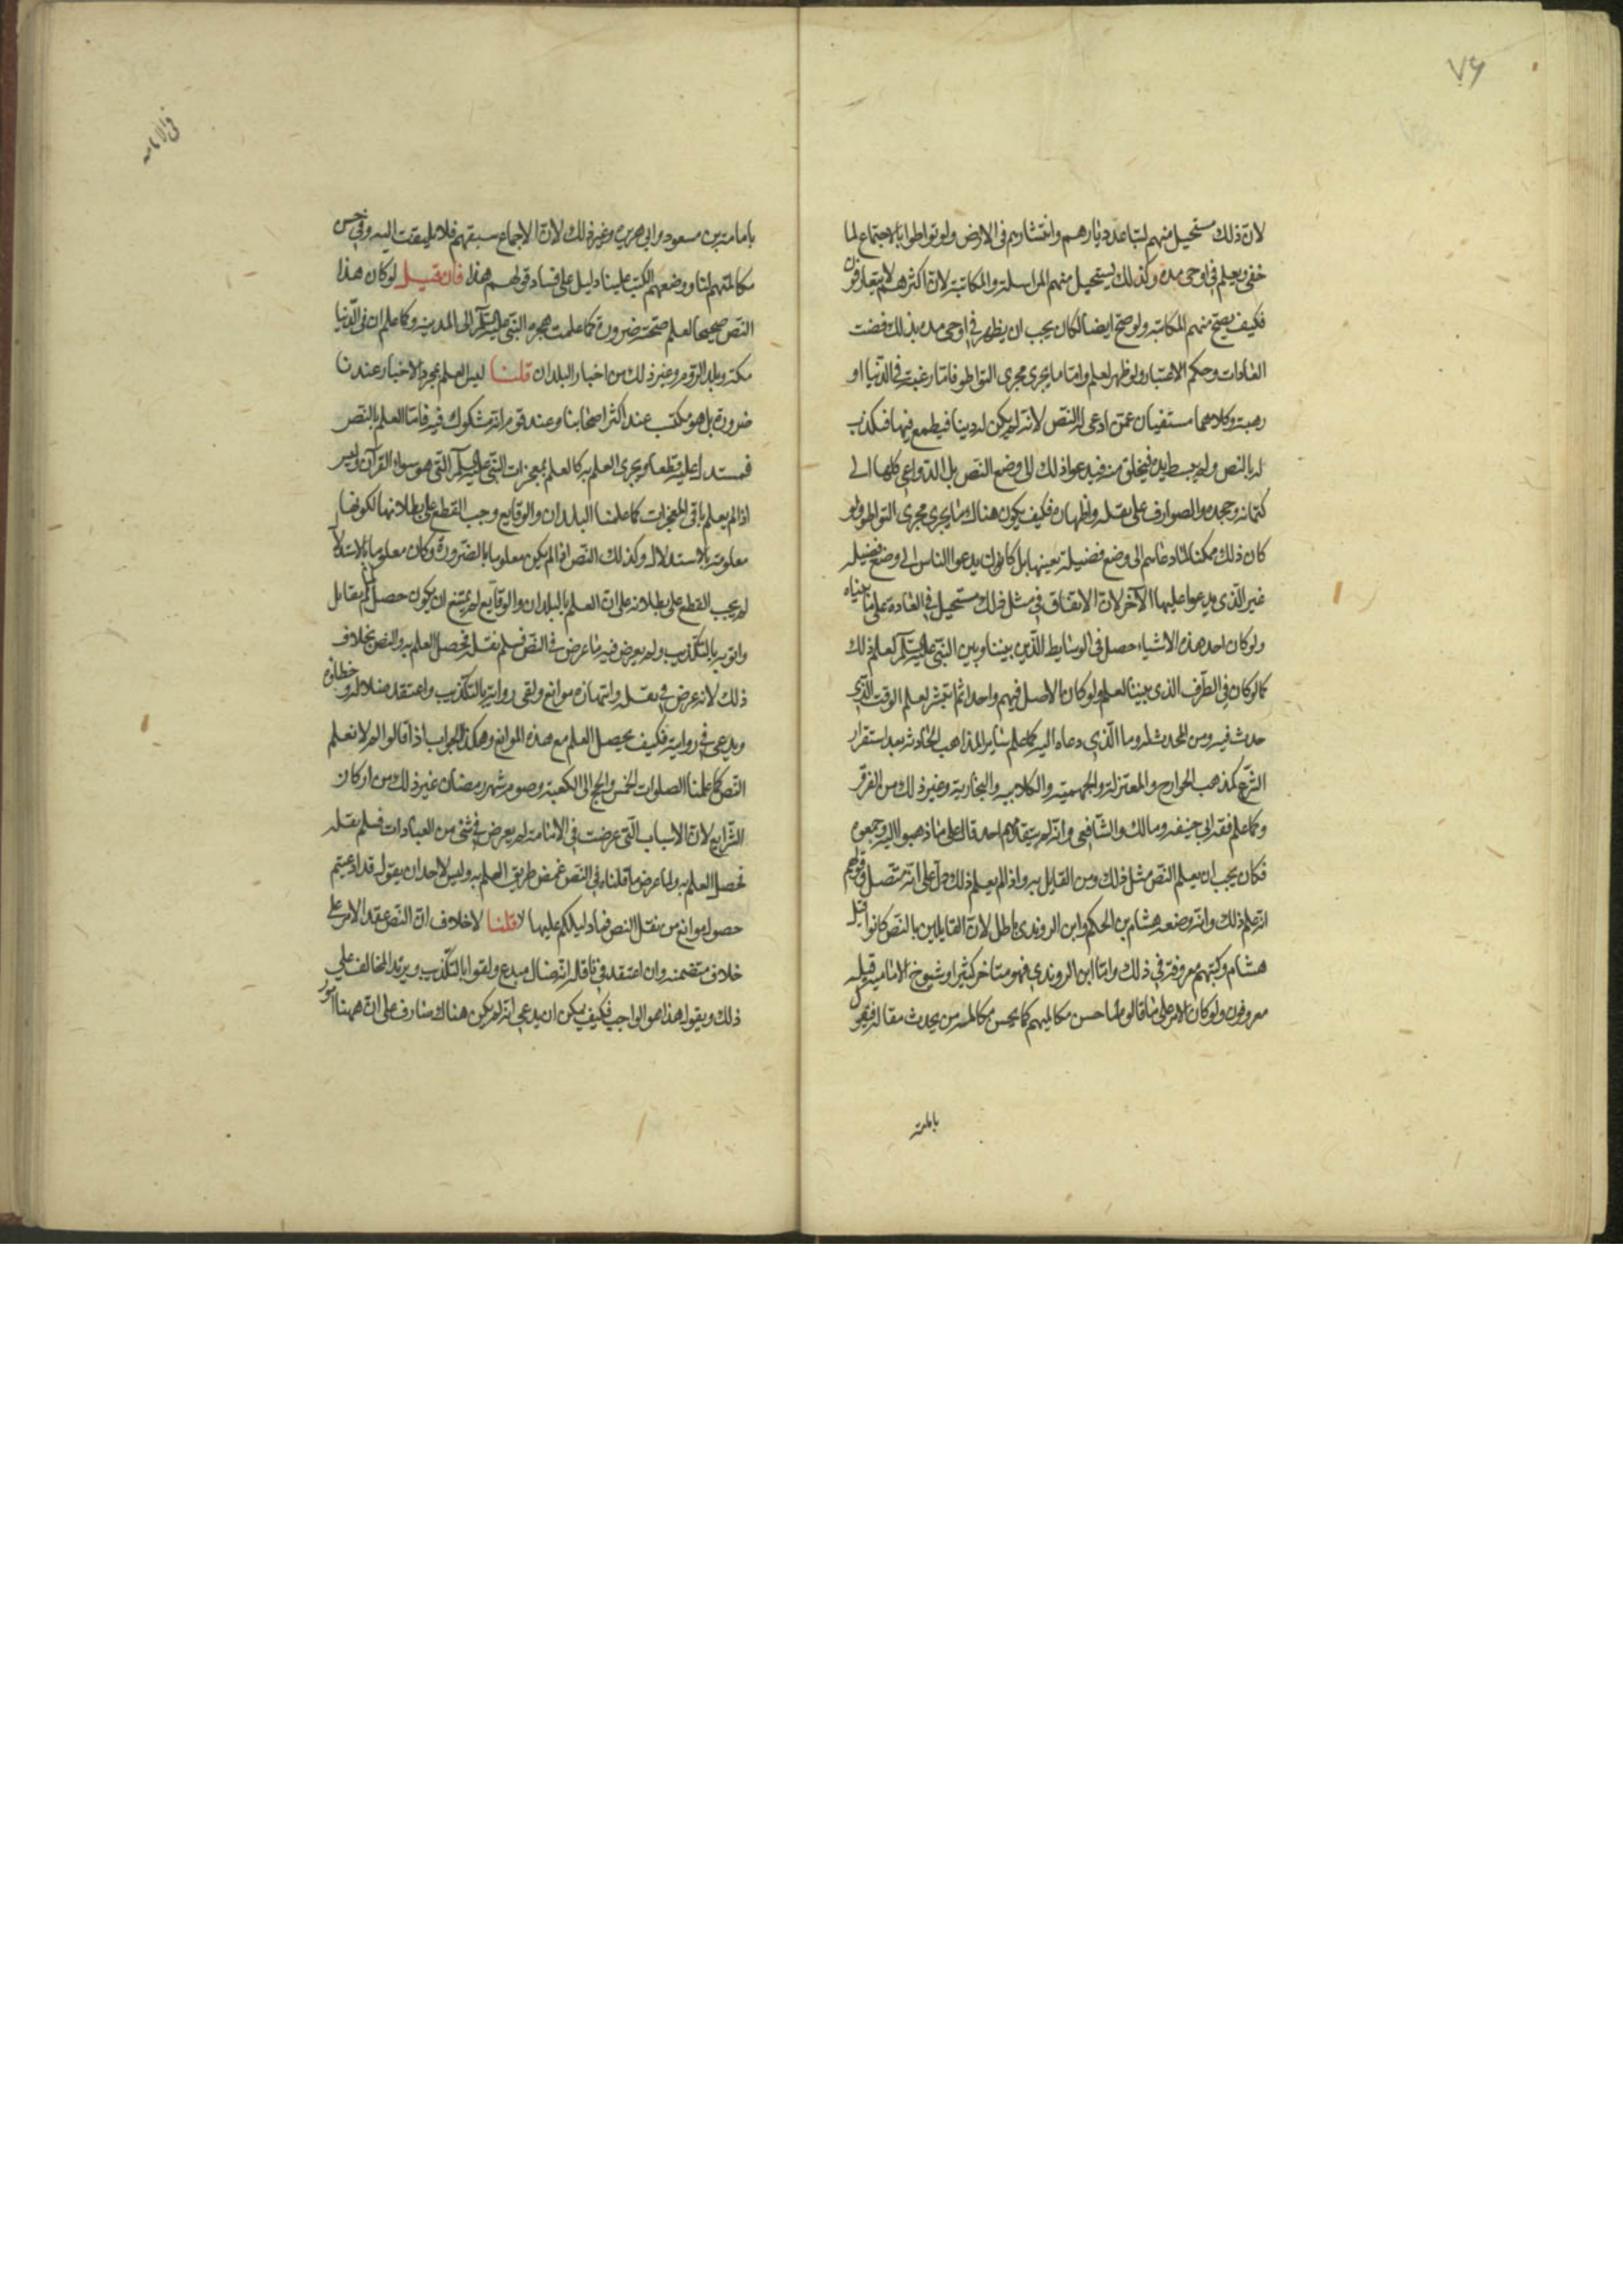 ٧٦
لان ذلك مستحيل منهم لتباعد ديارهم وانتشارهم في الارض ولو تواطوا بالاجتماع لما
خفي ويعلم في اوحى مدة وكذلك يستحيل منهم المراسلة والمكاتبة لان اكثرهم لا يتعارفون
فكيف يصح منهم المكاتبة ولو صح ايضا لكان يجب ان يظهر في اوحى مدة بذلك قضت
العادات وحكم الاعتبار ولو ظهر لعلم واما ما يجري مجرى التواطو فاما رغبة في الدنيا او
رهبة وكلاهما منتفيان عمن ادعى له النص لانه لم يكن له دنيا فيطمع فيها فيكذب
له بالنص ولم يبسط يده فيخاف منه فيدعوا ذلك الى وضع النص بل الدواعي كلها الى
كتمانه وجحده والصوارف على نقله واظهاره فكيف يكون هناك ما يجري مجرى التواطو ولو
كان ذلك ممكنا لما دعاهم الى وضع فضيلة بعينها بل كانوا ان يدعوا الناس الى وضع فضيلة
غير الذي يدعوا عليها الاخر لان الاتفاق في مثل ذلك مستحيل في العادة على ما بيناه
ولو كان احد هذه الاشياء حصل في الوسايط الذين بيننا وبين النبي عليه السلم لعلم ذلك
كما لو كان في الطرف الذي بيننا لعلم ولو كان الاصل فيهم واحدا ثم انتشر لعلم الوقت الذي
حدث فيه ومن المحدث له وما الذي دعاه اليه كما علم ساير المذاهب الحادثة بعد استقرار
الشرع كمذهب الخوارج والمعتزلة والجهمية والكلابية والنجارية وغير ذلك من الفرق
وكما علم فقه ابي حنيفة ومالك والشافعي وانه لم يتقدمهم احد قال على ما ذهبوا اليه وجمعوه
فكان يجب ان يعلم النص مثل ذلك ومن القايل به واذا لم يعلم ذلك دل على انه متصل وقولهم
انه علم ذلك وانه وضعه هشام بن الحكم وابن الروندي باطل لان القايلين بالنص كانوا قبل
هشام وكتبهم معروفة في ذلك واما ابن الروندي فهو متاخر كثيرا وشيوخ الامامية قبله
معروفون ولو كان الامر على ما قالوه لما حسن مكالمتهم كما يحسن مكالمة من يحدث مقالة فيقول
بامامة
في الامامة
بامامة بن مسعود وابي هريرة وغير ذلك لان الاجماع سبقهم فلا يلتفت اليه وفي حسن
مكالمتهم لنا ووضعهم الكتب علينا دليل على فساد قولهم هذا فان قيل لو كان هذا
النص صحيحا لعلم صحته ضرورة كما علمت هجرة النبي عليه السلم الى المدينة وكما علم ان في الدنيا
مكة وبلد الروم وغير ذلك من اخبار البلدان قلنا ليس العلم بمجرد الاخبار عندنا
ضرورة بل هو مكتسب عند اكثر اصحابنا وعند قوم انه مشكوك فيه فاما العلم بالنص
فمستدل عليه قطعا ويجري العلم به كالعلم بمعجزات النبي عليه السلم التي هو سواء القرآن وليس
اذا لم يعلم باقي المعجزات كما علمنا البلدان والوقايع وجب القطع على بطلانها لكونها
معلومة بالاستدلال وكذلك النص اذا لم يكن معلوما بالضرورة وكان معلوما بالاستدلال
لم يجب القطع على بطلانه على ان العلم بالبلدان والوقايع لم يمتنع ان يكون حصل لما لم يقابل
راويه بالتكذيب ولم يعرض فيه ما عرض في النص فسلم نقله فحصل العلم به والنص بخلاف
ذلك لانه عرض في نقله واشتهاره موانع ولقي روايته بالتكذيب واعتقد ضلاله وخطاؤه
ويدعى في روايته فكيف يحصل العلم مع هذه الموانع وهكذا الجواب اذا قالوا لم لا نعلم
النص كما علمنا الصلوات الخمس والحج الى الكعبة وصوم شهر رمضان غير ذلك من اركان
الشرايع لان الاسباب التي عرضت في الامامة لم يعرض في شئ من العبادات فسلم نقله
فحصل العلم به ولما عرض ما قلناه في النص غمض طريق العلم به وليس لاحد ان يقول قد ادعيتم
حصول موانع من نقل النص فما دليلكم عليها قلنا لا خلاف ان النص عقد الامر على
خلاف متضمنه وان اعتقد في ناقله انه ضال مبدع ولقوا بالتكذيب ويرتد المخالف على
ذلك ويقول هذا هو الواجب فكيف يمكن ان يدعى انه لم يكن هناك صارف على ان ههنا امور